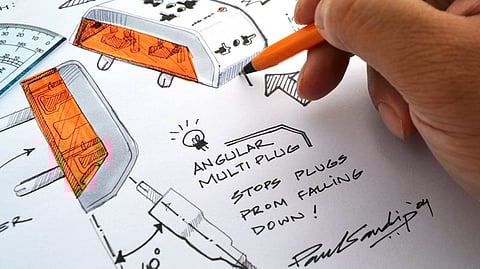 ANGULAR
MULTIPLUG
STOPS PLUGS
FROM FALLING
DOWN!
Paul Sandip 09
40°
ER